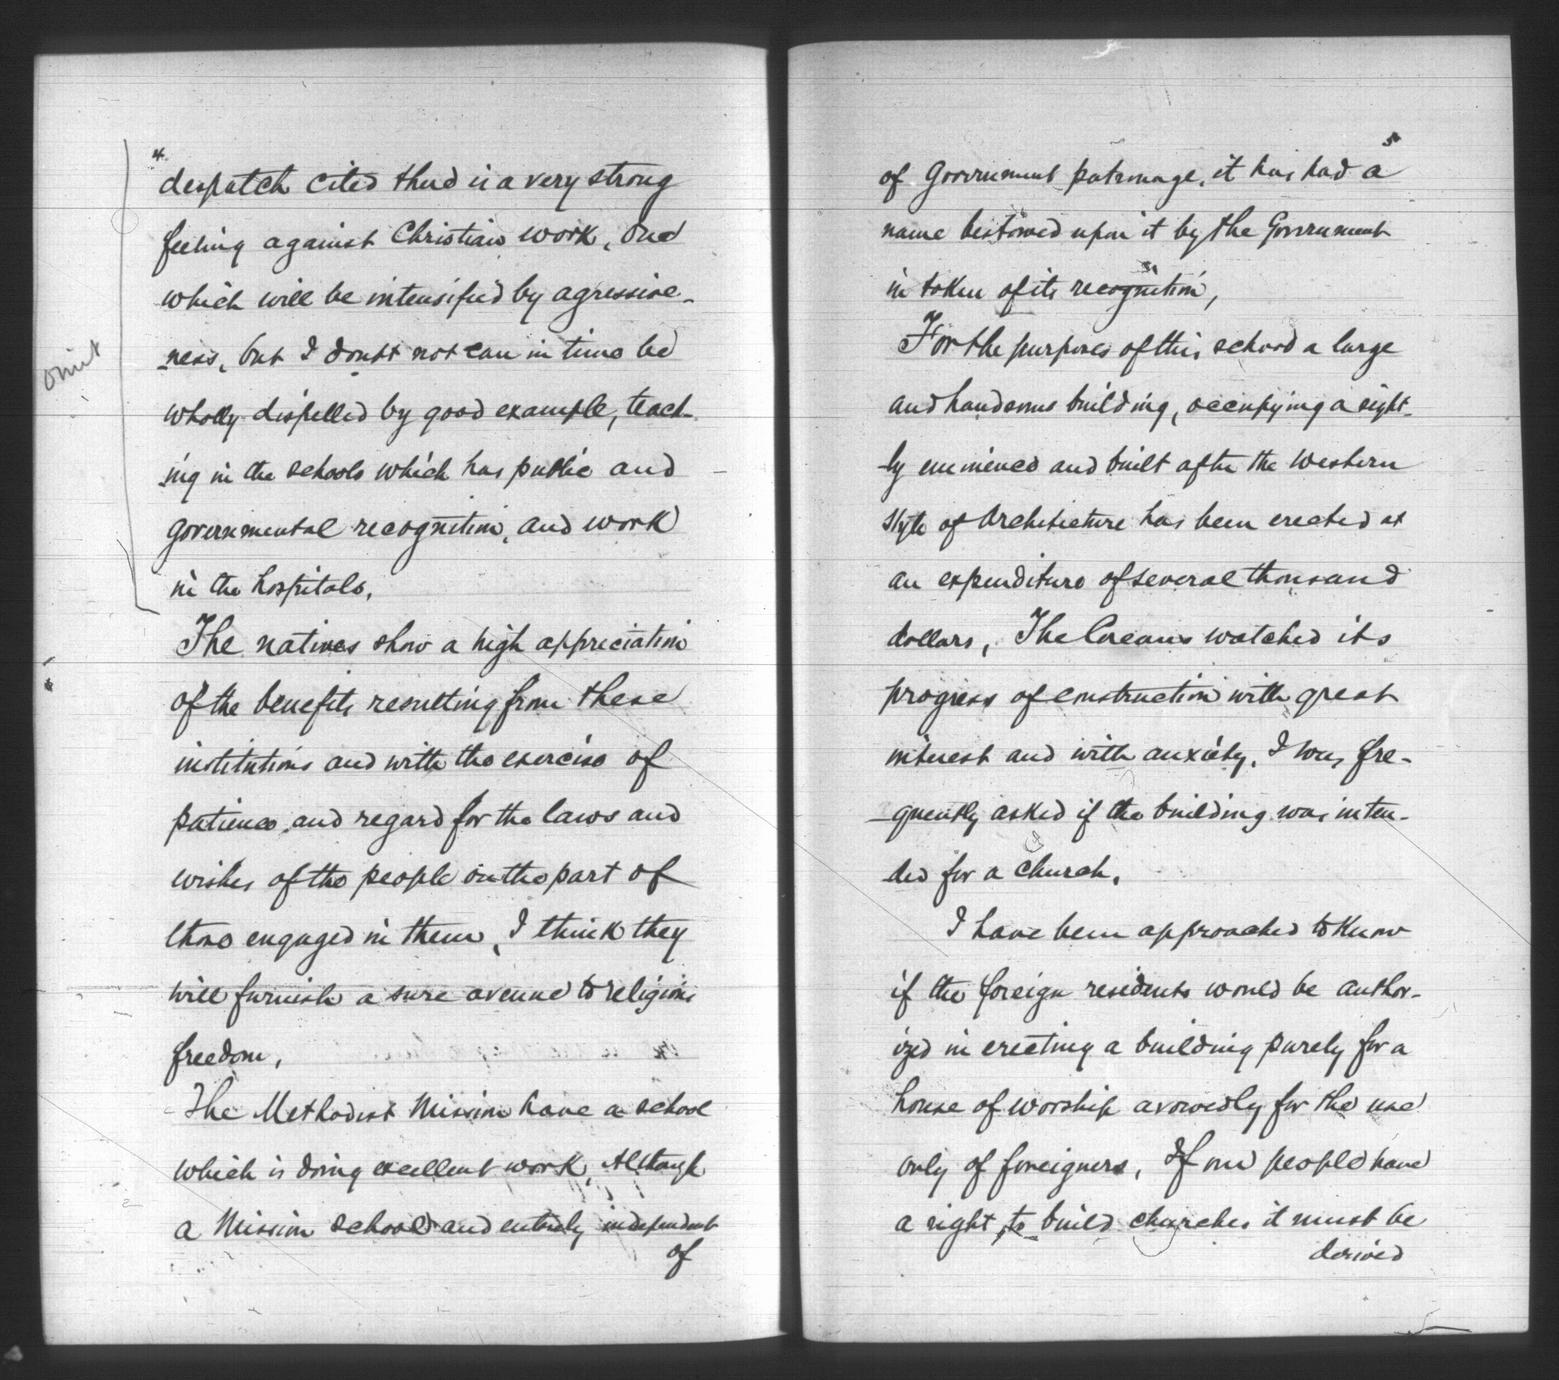 4.
despatch cited there is a very strong
feeling against Christian work, one
which will be intensified by agressive-
ness, but I doubt not can in time be
wholly dispelled by good example, teach-
ing in the schools which has public and
governmental recognition, and work
in the hospitals.
omit
The natives show a high appreciation
of the benefits resulting from these
institutions and with the exercise of
patience, and regard for the laws and
wishes of the people on the part of
those engaged in them, I think they
will furnish a sure avenue to religious
freedom.
The Methodist Mission have a school
which is doing excellent work, Although
a Mission school and entirely independent
of
5
of Government patronage, it has had a
name bestowed upon it by the Government
in token of its recognition,
For the purposes of this school a large
and handsome building, occupying a sight-
ly eminence and built after the Western
style of Architecture has been erected at
an expenditure of several thousand
dollars, The Coreans watched its
progress of construction with great
interest and with anxiety. I was fre-
quently asked if the building was inten-
ded for a church.
I have been approached to know
if the foreign residents would be author-
ized in erecting a building purely for a
house of worship avowedly for the use
only of foreigners, If our people have
a right to build churches it must be
derived